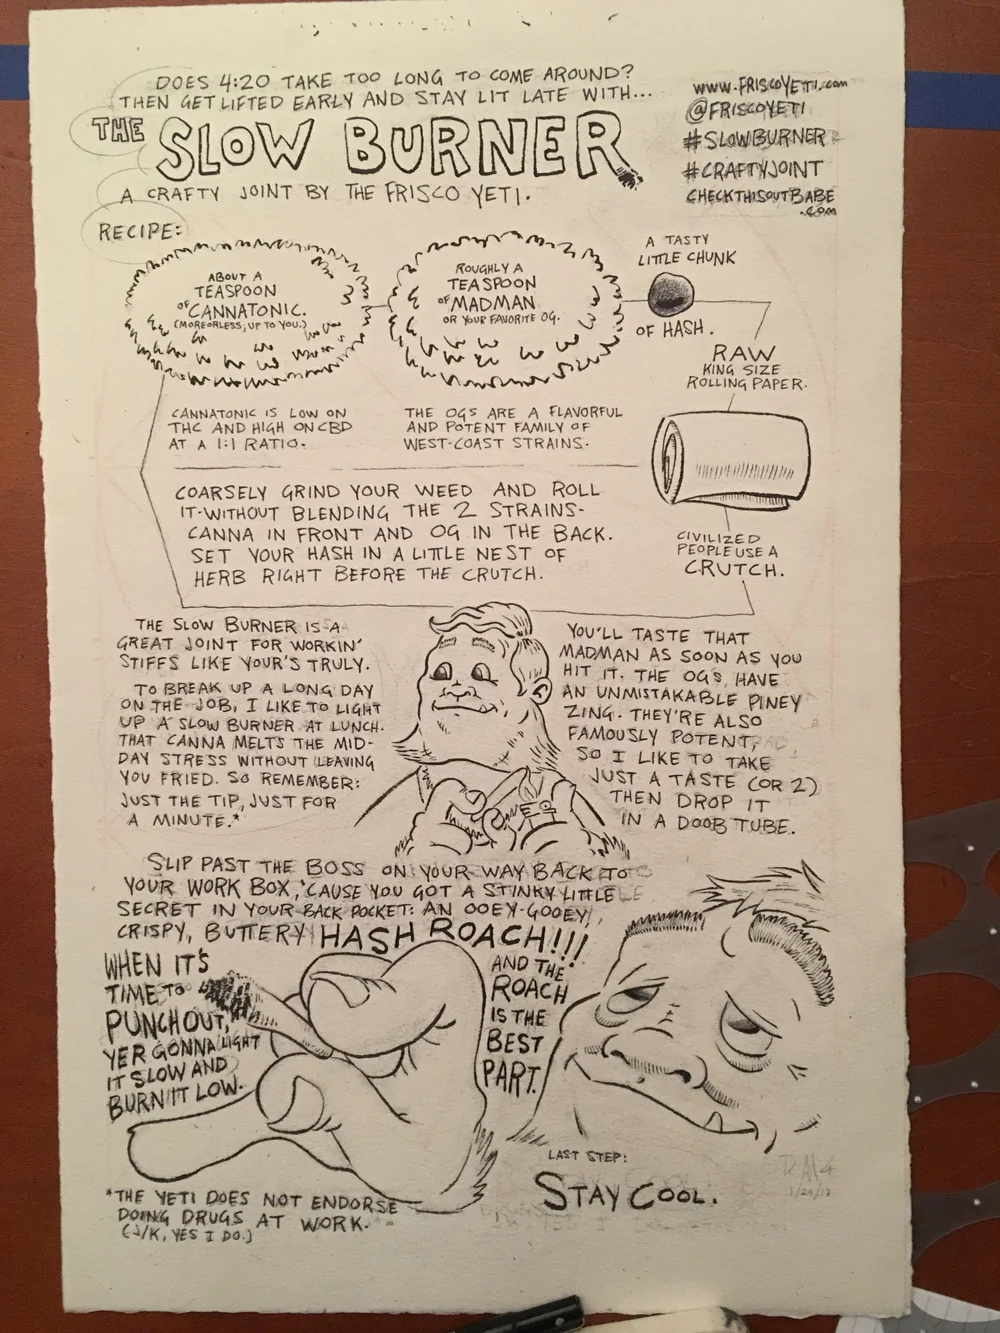 DOES 4:20 TAKE TOO LONG TO COME AROUND?
THEN GET LIFTED EARLY AND STAY LIT LATE WITH...
THE SLOW BURNER
A CRAFTY JOINT BY THE FRISCO YETI.
WWW.FRISCOYETI.COM
@FRISCOYETI
#SLOWBURNER
#CRAFTYJOINT
CHECKTHISOUTBABE
.COM
RECIPE:
ABOUT A
TEASPOON
OF CANNATONIC.
(MORE OR LESS, UP TO YOU.)
ROUGHLY A
TEASPOON
OF MADMAN
OR YOUR FAVORITE OG.
A TASTY
LITTLE CHUNK
OF HASH.
RAW
KING SIZE
ROLLING PAPER.
CANNATONIC IS LOW ON
THC AND HIGH ON CBD
AT A 1:1 RATIO.
THE OGS ARE A FLAVORFUL
AND POTENT FAMILY OF
WEST-COAST STRAINS.
COARSELY GRIND YOUR WEED AND ROLL
IT-WITHOUT BLENDING THE 2 STRAINS-
CANNA IN FRONT AND OG IN THE BACK.
SET YOUR HASH IN A LITTLE NEST OF
HERB RIGHT BEFORE THE CRUTCH.
CIVILIZED
PEOPLE USE A
CRUTCH.
THE SLOW BURNER IS A
GREAT JOINT FOR WORKIN'
STIFFS LIKE YOUR'S TRULY.
TO BREAK UP A LONG DAY
ON THE JOB, I LIKE TO LIGHT
UP A SLOW BURNER AT LUNCH.
THAT CANNA MELTS THE MID-
DAY STRESS WITHOUT LEAVING
YOU FRIED. SO REMEMBER:
JUST THE TIP, JUST FOR
A MINUTE.*
YOU'LL TASTE THAT
MADMAN AS SOON AS YOU
HIT IT. THE OGS, HAVE
AN UNMISTAKABLE PINEY
ZING. THEY'RE ALSO
FAMOUSLY POTENT,
SO I LIKE TO TAKE
JUST A TASTE (OR 2)
THEN DROP IT
IN A DOOB TUBE.
SLIP PAST THE BOSS ON YOUR WAY BACK TO
YOUR WORK BOX, 'CAUSE YOU GOT A STINKY LITTLE
SECRET IN YOUR BACK POCKET: AN OOEY-GOOEY,
CRISPY, BUTTERY HASH ROACH!!!
WHEN IT'S
TIME TO
PUNCH OUT,
YER GONNA LIGHT
IT SLOW AND
BURN IT LOW.
AND THE
ROACH
IS THE
BEST
PART.
LAST STEP:
STAY COOL.
*THE YETI DOES NOT ENDORSE
DOING DRUGS AT WORK.
(J/K, YES I DO.)